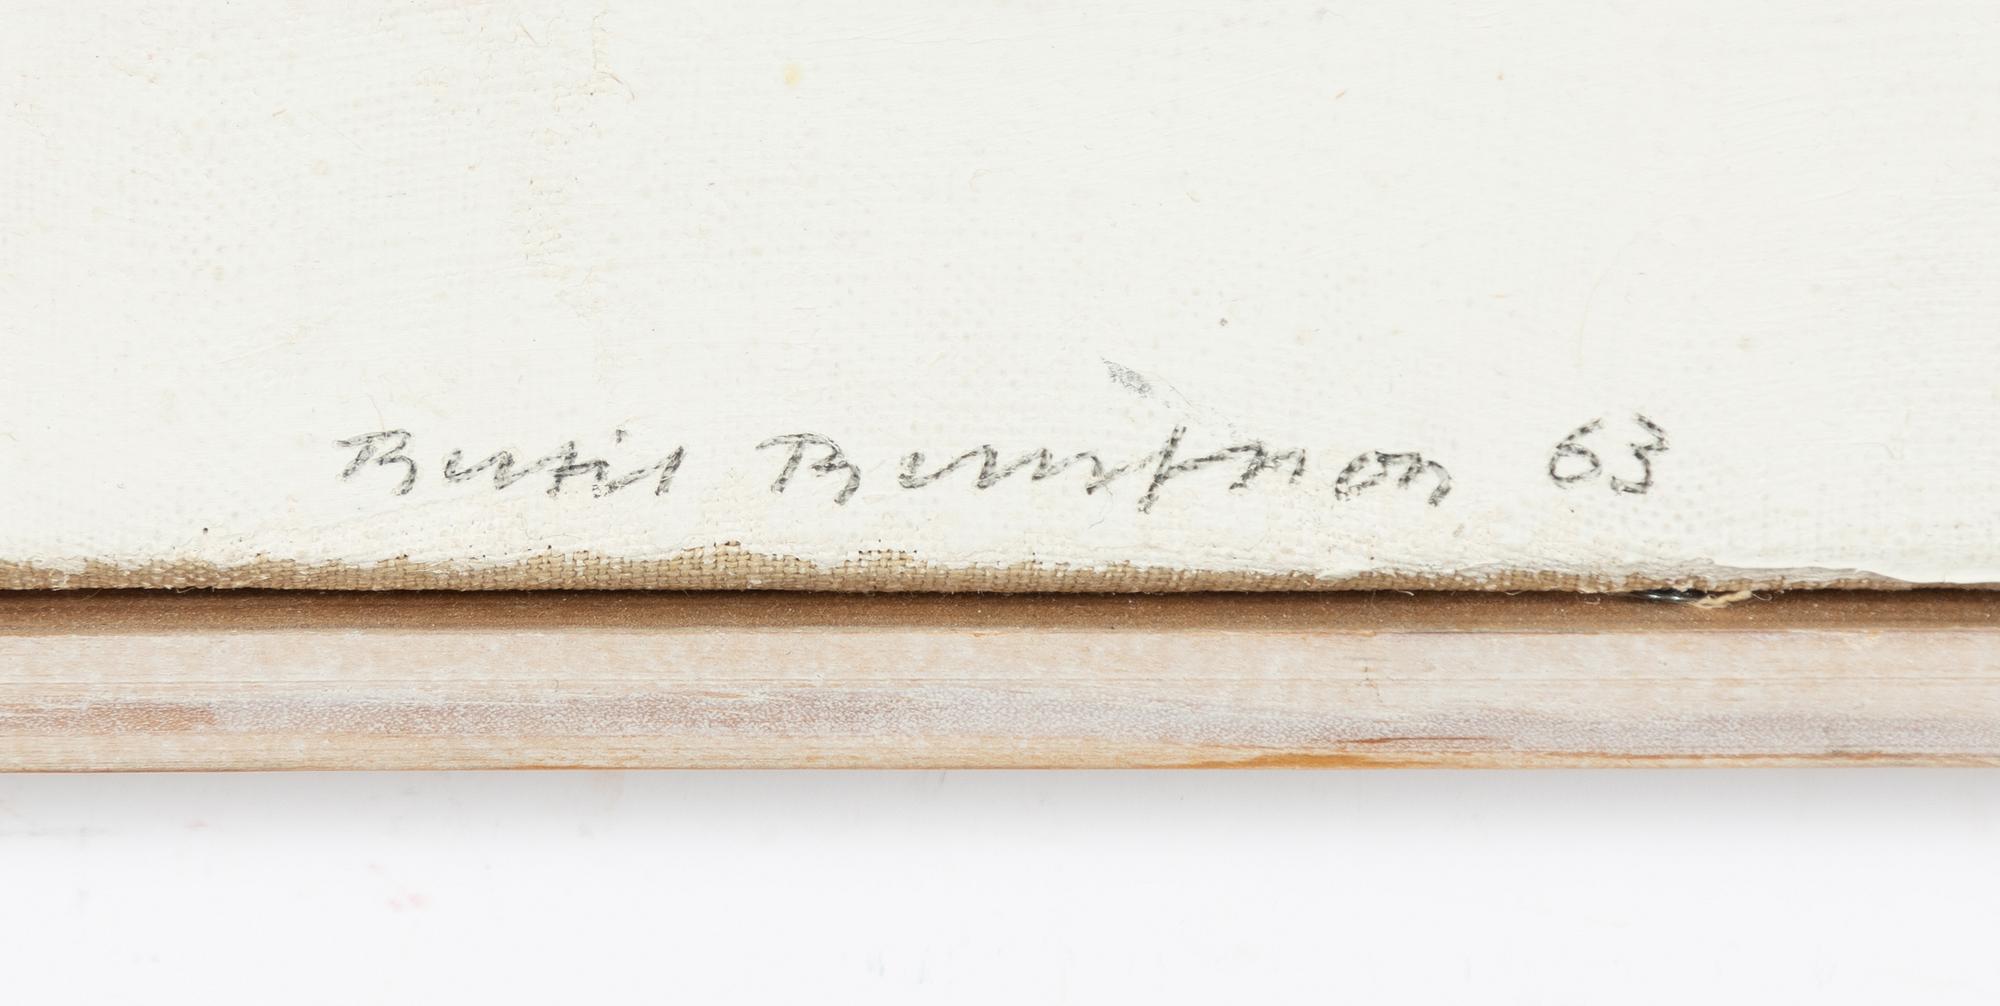 Bertil Berntsson 63